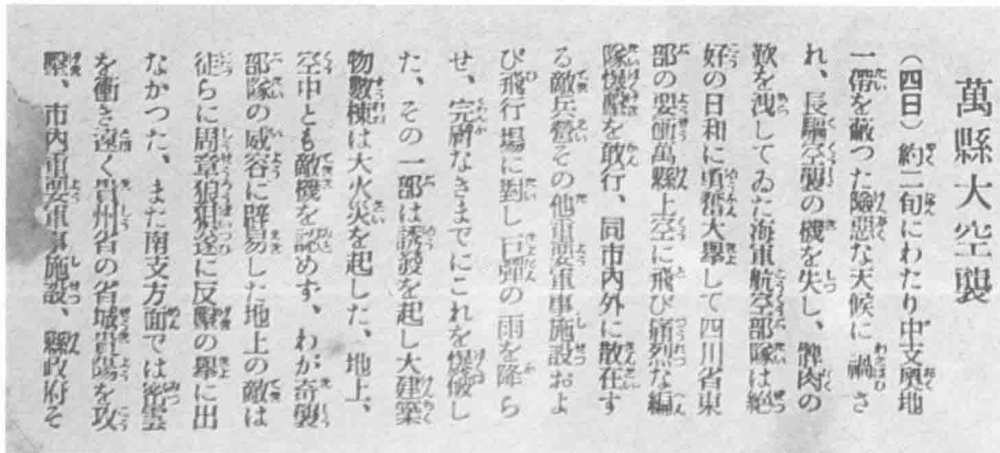 萬縣大空襲
（四日）約二旬にわたり中支奥地
一帶を蔽つた險惡な天候に禍さ
れ、長驅空襲の機を失し、髀肉の
歎を洩してゐた海軍航空部隊は絶
好の日和に勇奮大擧して四川省東
部の要衝萬縣上空に飛び痛烈な編
隊爆擊を敢行、同市内外に散在す
る敵兵營その他重要軍事施設およ
び飛行場に對し巨彈の雨を降ら
せ、完膚なきまでにこれを爆破し
た、その一部は誘發を起し大建築
物數棟は大火災を起した、地上、
空中とも敵機を認めず、わが奇襲
部隊の威容に辟易した地上の敵は
徒らに周章狼狽遂に反擊の擧に出
なかつた、また南支方面では密雲
を衝き遠く貴州省の省城貴陽を攻
擊、市内重要軍事施設、縣政府そ